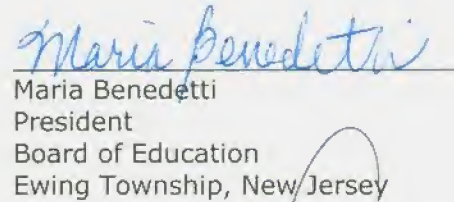 Maria Benedetti
Maria Benedetti
President
Board of Education
Ewing Township, New Jersey